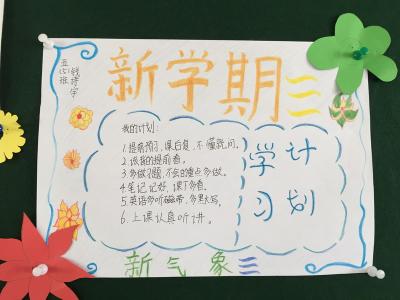 新学期
我的计划:
1.提前预习,课后复,不懂就问。
2.该背的提前背。
3.多做习题,不会的重点多做。
4.笔记记好,课下多看。
5.英语多听磁带,多默写。
6.上课认真听讲。
学习
计划
新气象